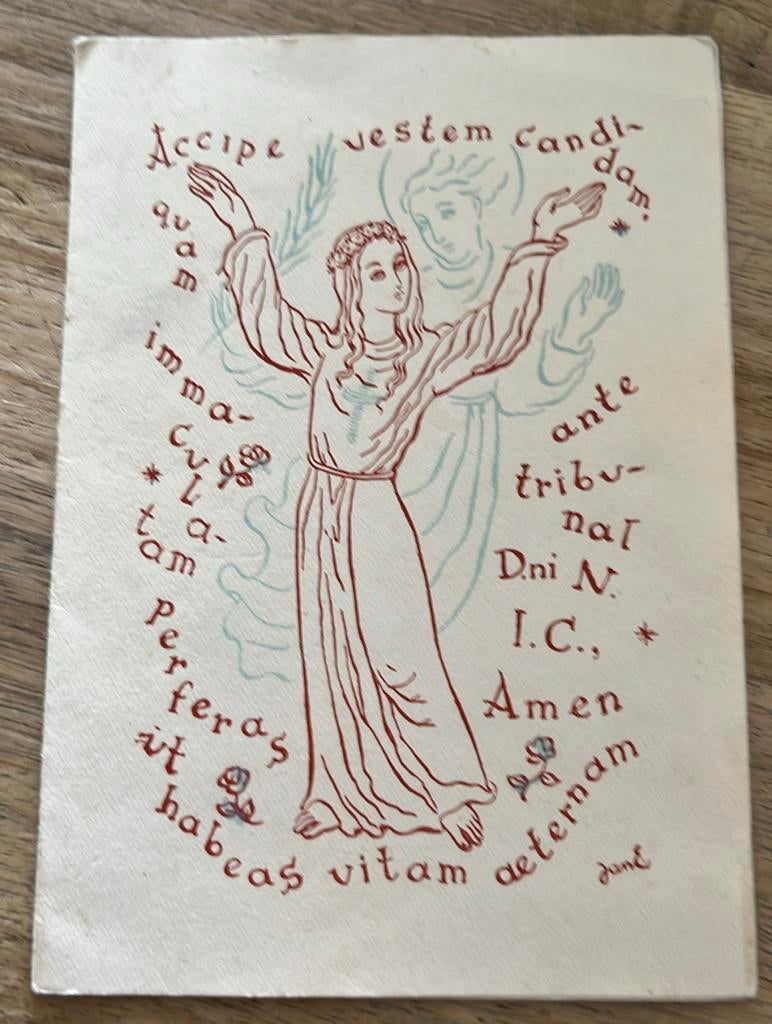 Accipe vestem candi-
dam.
quam
imma-
cula-
tam
per
feras
ante
tribu-
nal
D.ni N.
I.C.,
Amen
ut
habeas vitam aeternam